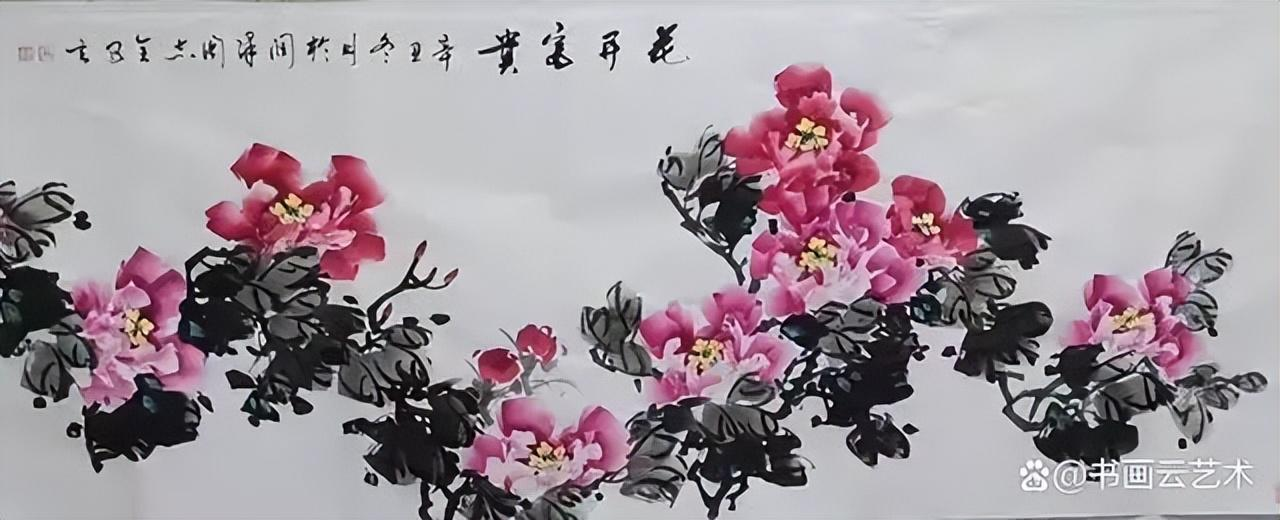 花开富贵 辛丑冬月於润泽阁志全写之
@书画云艺术